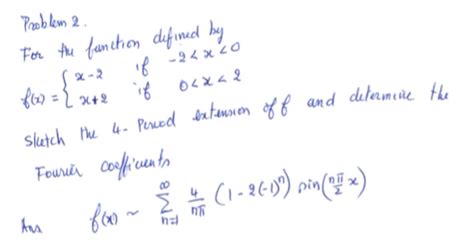 Problem 2.
For the function defined by
f(x) = { x-2 if -2<x<0
x+2 if 0<x<2
Sketch the 4-Period extension of f and determine the
Fourier coefficients
Ans f(x) ~ ∞Σn=1 4/nπ (1-2(-1)^n) sin(nπ/2 x)